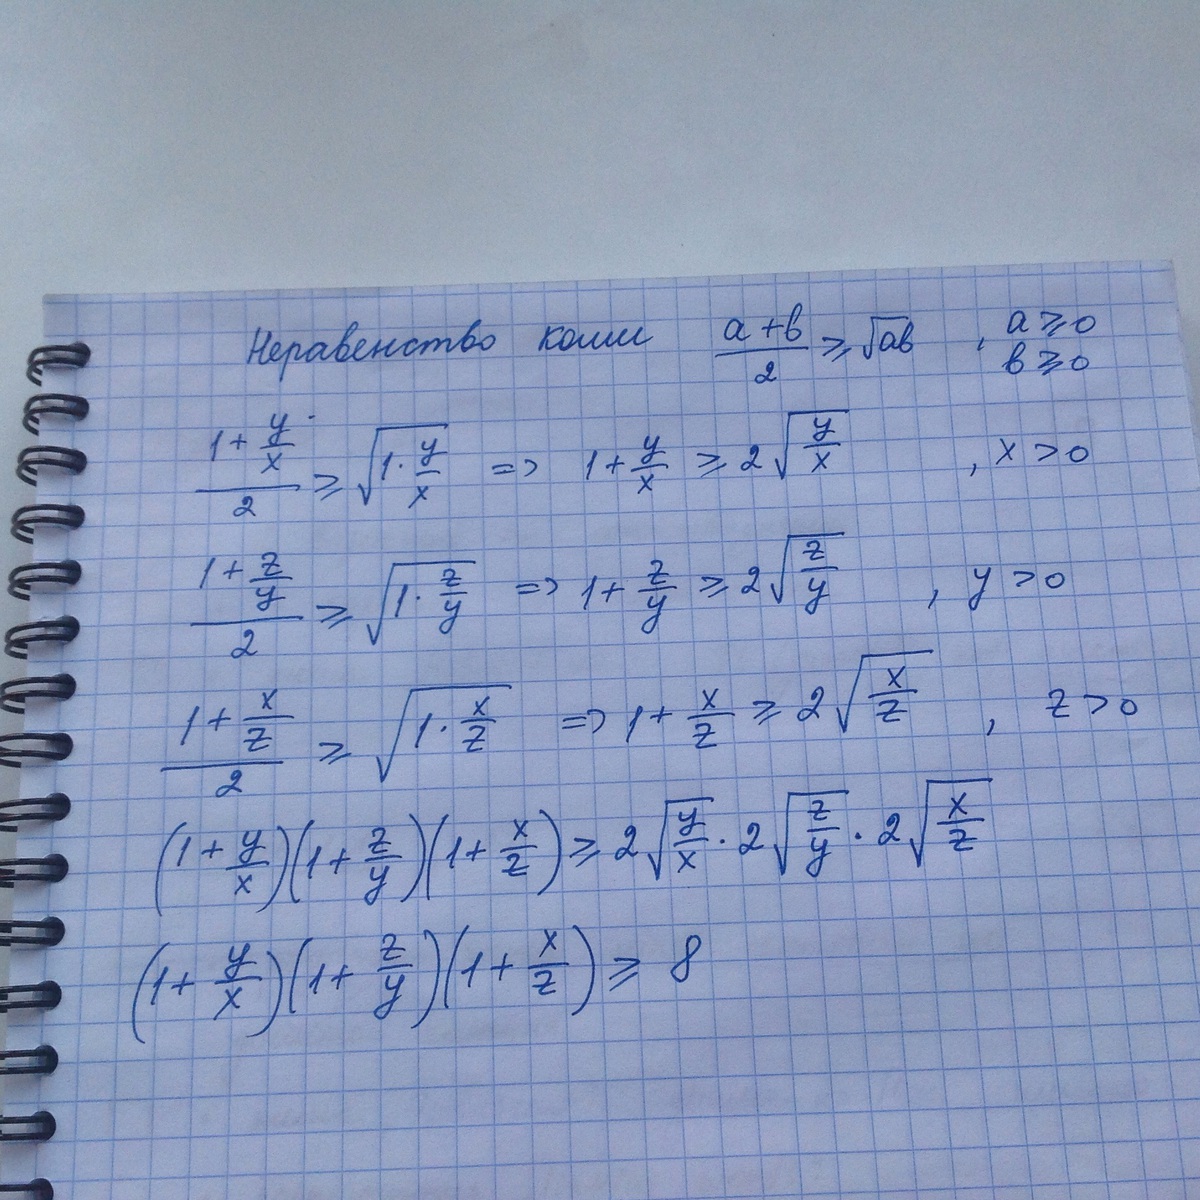 Неравенство Коши (a+b)/2 ≥ √ab , a ≥ 0 b ≥ 0
(1 + y/x)/2 ≥ √(1·y/x) => 1 + y/x ≥ 2√(y/x) , x > 0
(1 + z/y)/2 ≥ √(1·z/y) => 1 + z/y ≥ 2√(z/y) , y > 0
(1 + x/z)/2 ≥ √(1·x/z) => 1 + x/z ≥ 2√(x/z) , z > 0
(1 + y/x)(1 + z/y)(1 + x/z) ≥ 2√(y/x) · 2√(z/y) · 2√(x/z)
(1 + y/x)(1 + z/y)(1 + x/z) ≥ 8